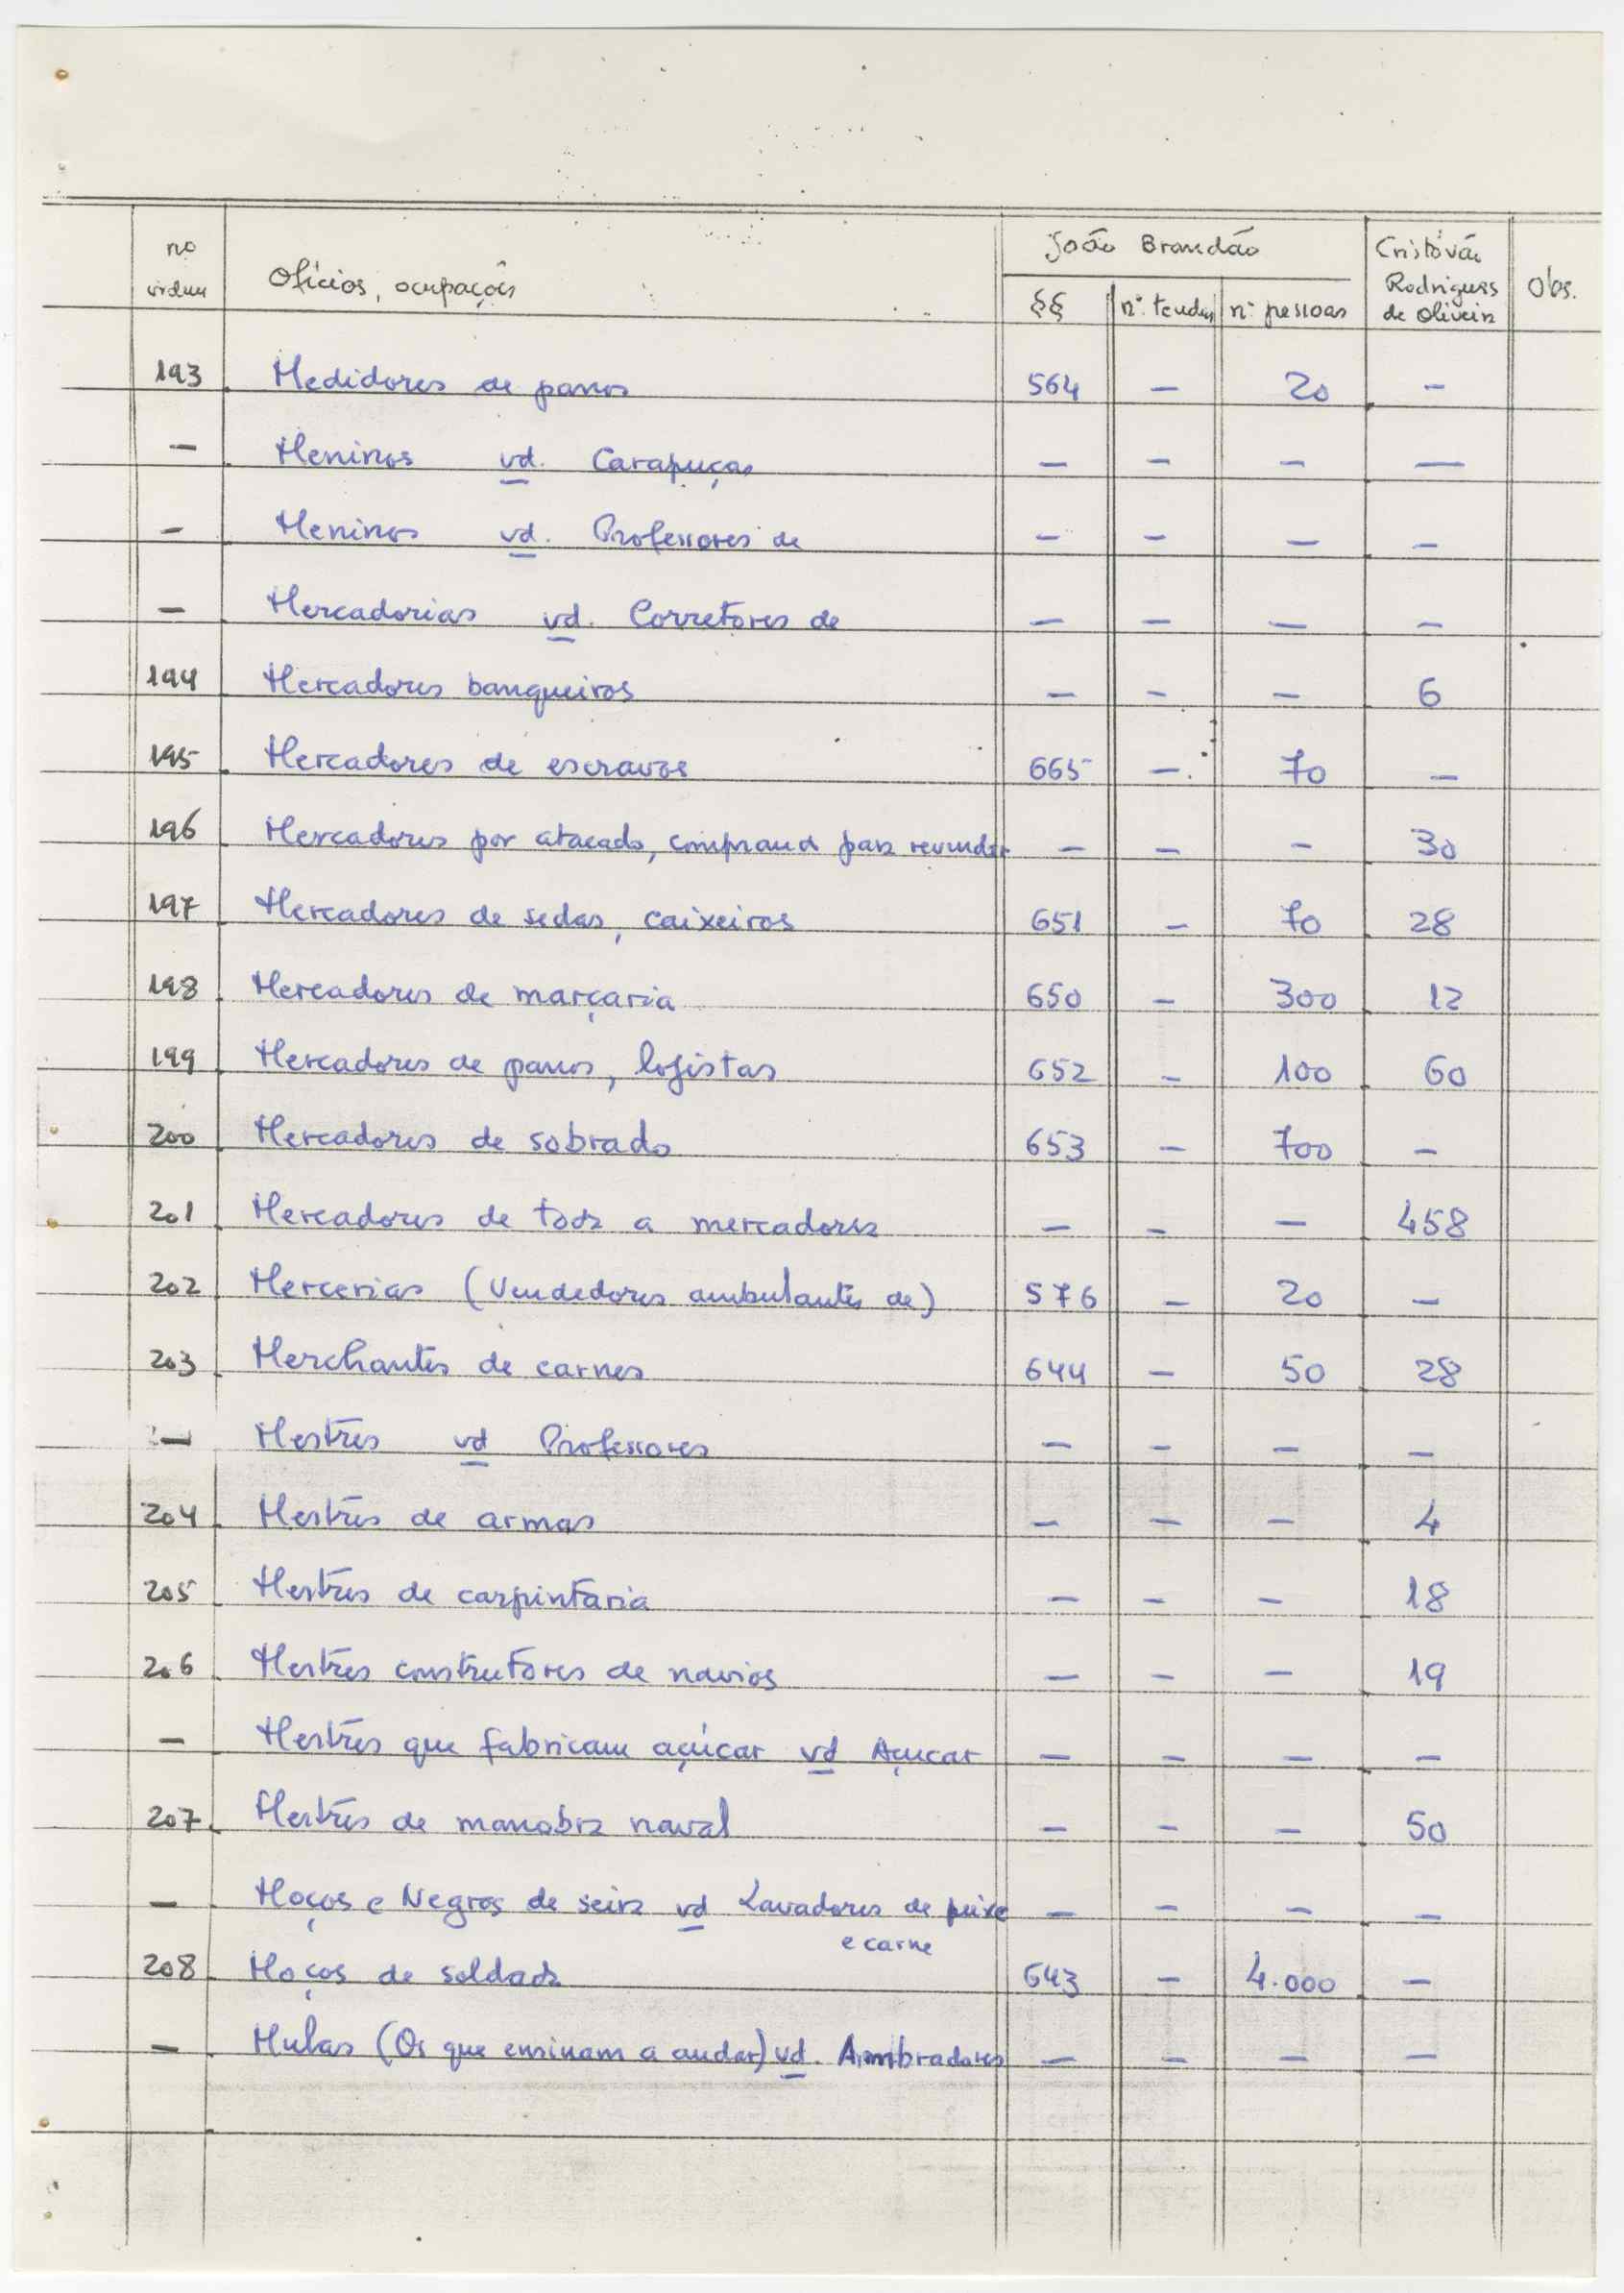 nº ordem | Ofícios, ocupações | João Brandão | Cristóvão Rodrigues de Oliveira | Obs.
§§ | nº tendas | nº pessoas
193 Medidores de panos 564 – 20 –
– Meninos vd. Carapuças – – – –
– Meninos vd. Professores de – – – –
– Mercadorias vd. Corretores de – – – –
194 Mercadores banqueiros – – – 6
195 Mercadores de escravos 665 – 70 –
196 Mercadores por atacado, comprand para revender – – – 30
197 Mercadores de sedas, caixeiros 651 – 70 28
198 Mercadores de marçaria 650 – 300 12
199 Mercadores de panos, logistas 652 – 100 60
200 Mercadores de sobrado 653 – 700 –
201 Mercadores de toda a mercadoria – – – 458
202 Mercerias (Vendedores ambulantes de) 576 – 20 –
203 Merchantes de carnes 644 – 50 28
– Mestres vd Professores – – – –
204 Mestres de armas – – – 4
205 Mestres de carpintaria – – – 18
206 Mestres construtores de navios – – – 19
– Mestres que fabricam açúcar vd Açucar – – – –
207 Mestres de manobra naval – – – 50
– Moços e Negros de seira vd Lavadores de peixe – – – –
e carne
208 Moços de soldada 643 – 4.000 –
– Mulas (Os que ensinam a andar) vd. – – – –